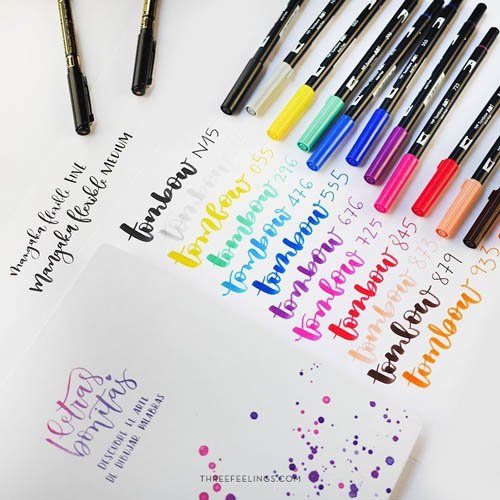 mangaka flexible FINE
mangaka flexible MEDIUM
tombow N15
tombow
tombow 055
tombow 296
tombow 476
tombow 555
tombow 676
tombow 725
tombow 845
tombow 873
tombow 879
tombow 933
lletras
bonitas
DESCUBRE EL ARTE
DE DIBUJAR PALABRAS
THREEFEELINGS.COM